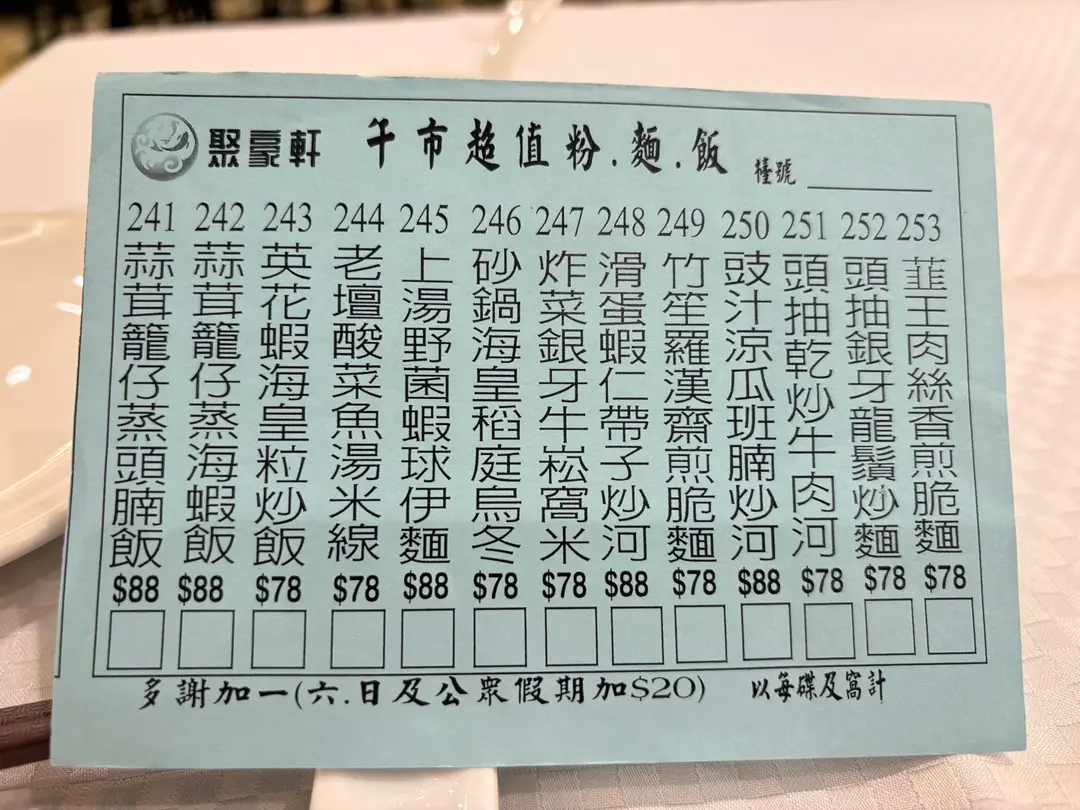 聚豪軒 午市超值粉.麵.飯 檯號
241 蒜茸籠仔蒸頭腩飯 $88
242 蒜茸籠仔蒸海蝦飯 $88
243 英花蝦海皇粒炒飯 $78
244 老壇酸菜魚湯米線 $78
245 上湯野菌蝦球伊麵 $88
246 砂鍋海皇稻庭烏冬 $78
247 炸菜銀牙牛崧窩米 $78
248 滑蛋蝦仁帶子炒河 $88
249 竹笙羅漢齋煎脆麵 $78
250 豉汁涼瓜班腩炒河 $88
251 頭抽乾炒牛肉河 $78
252 頭抽銀牙龍鬚炒麵 $78
253 韮王肉絲香煎脆麵 $78
多謝加一(六.日及公眾假期加$20) 以每碟及窩計